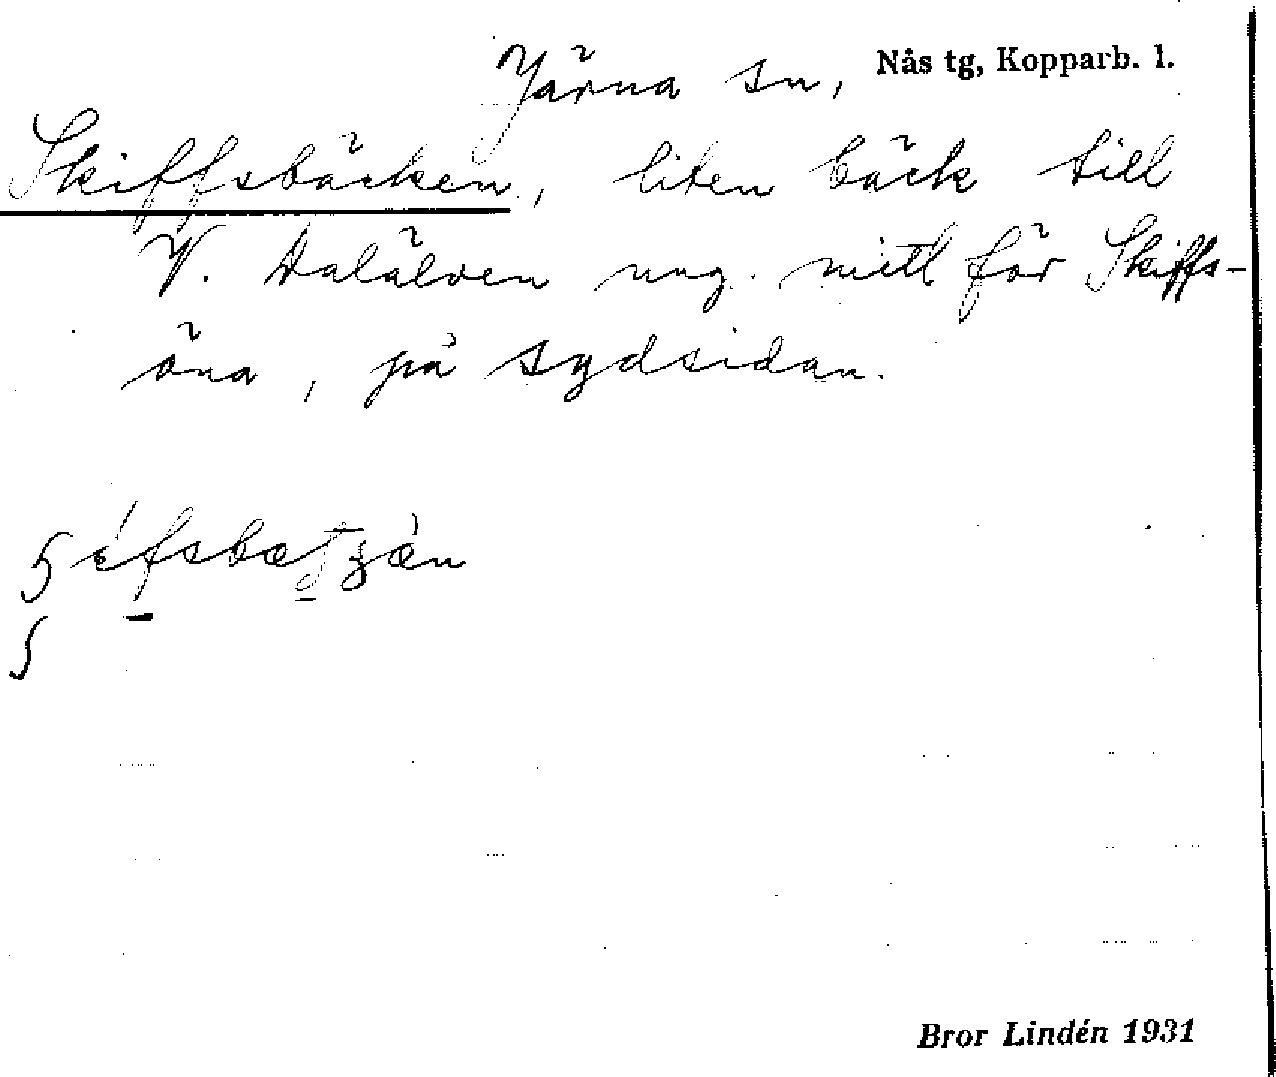 Järna sn, Nås tg, Kopparb. l.
Skiffsbäcken, liten bäck till
V. Dalälven ung. mitt för Skiffs-
öna, på sydsidan.
Bror Lindén 1931